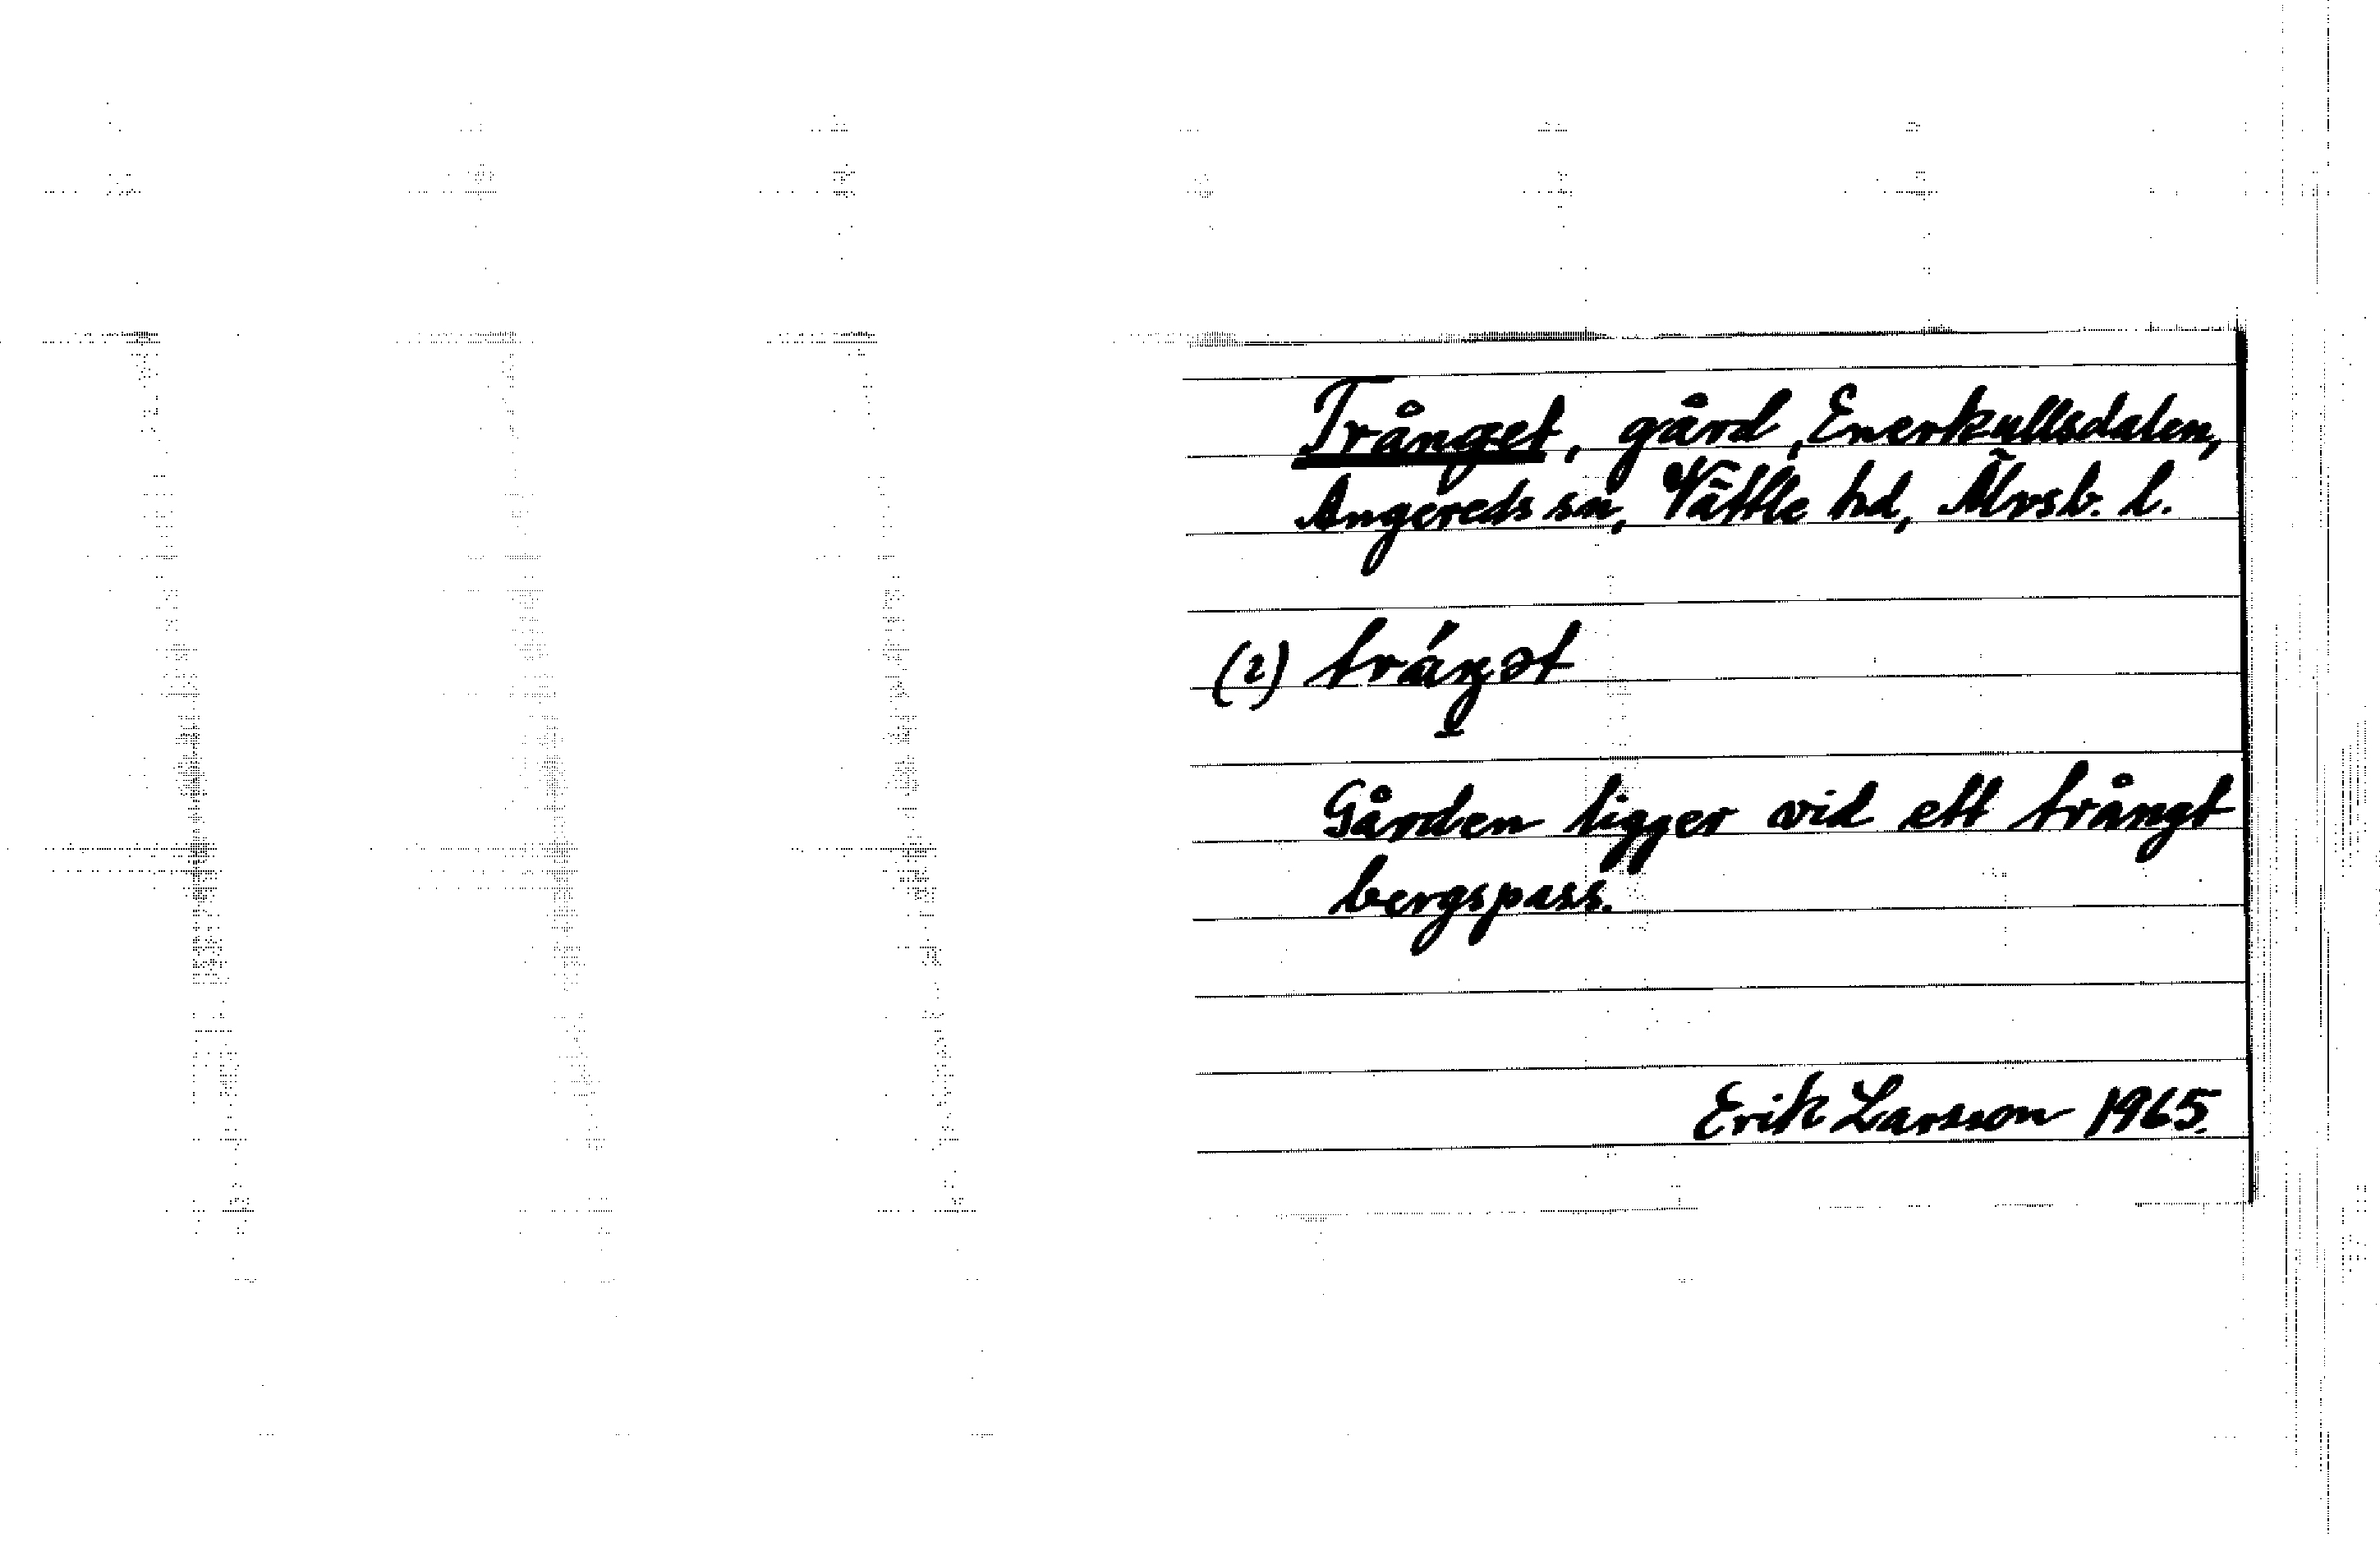 Trånget, gård, Enerkullsdalen,
Angereds sn, Vättle hd, Älvsb. l.
(2) tráŋət
Gården ligger vid ett trångt
bergspass.
Erik Larsson 1965.